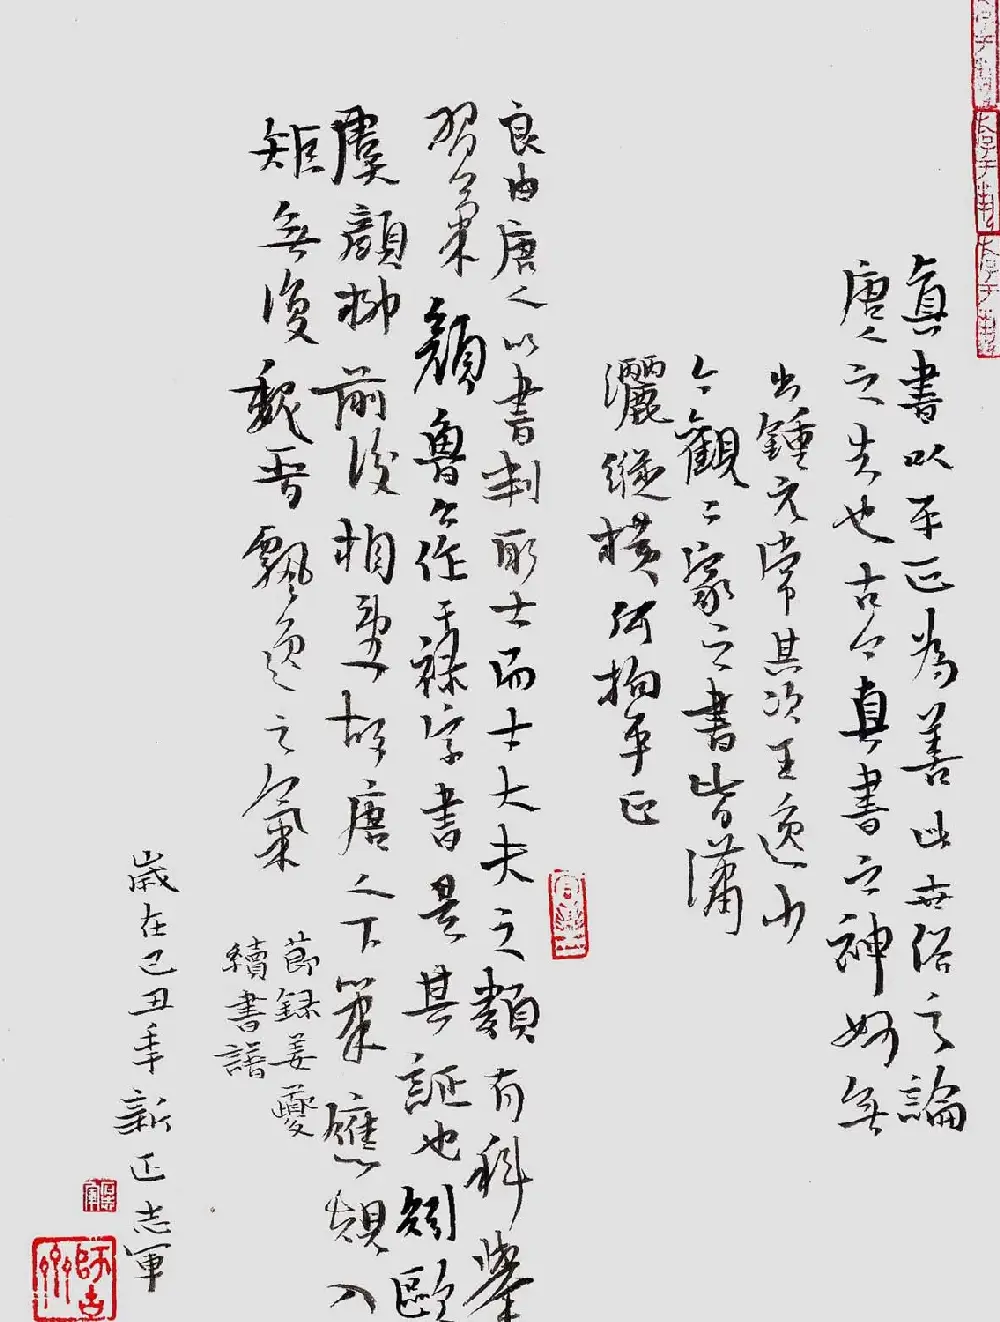 真書以平正為善此世俗之論
唐人之失也古今真書之神妙無
出鍾元常其次王逸少
今觀二家之書皆瀟
灑縱橫何拘平正
良由唐人以書判取士而士大夫之類有科舉
習氣顏魯公作干祿字書是其證也矧歐
虞顏柳前後相望故唐人下筆應規入
矩無復魏晉飄逸之氣
節録姜夔
續書譜
歲在己丑年新正志軍
師古